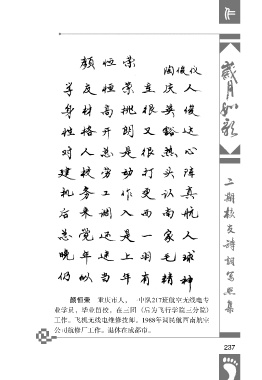 颜恒荣
陶俊仪
学友恒荣重庆人
身材高挑很英俊
性格开朗又豁达
对人总是很热心
建校劳动打头阵
机务工作更认真
后来调入西南航
总觉还是一家人
晚年迷上羽毛球
仍似当年有精神
颜恒荣 重庆市人，一中队217班航空无线电专
业学员，毕业留校，在三团（后为飞行学院三分院）
工作。飞机无线电维修技师。1988年调民航西南航空
公司航修厂工作。退休在成都市。
岁月如歌
二期校友诗词写照集
237